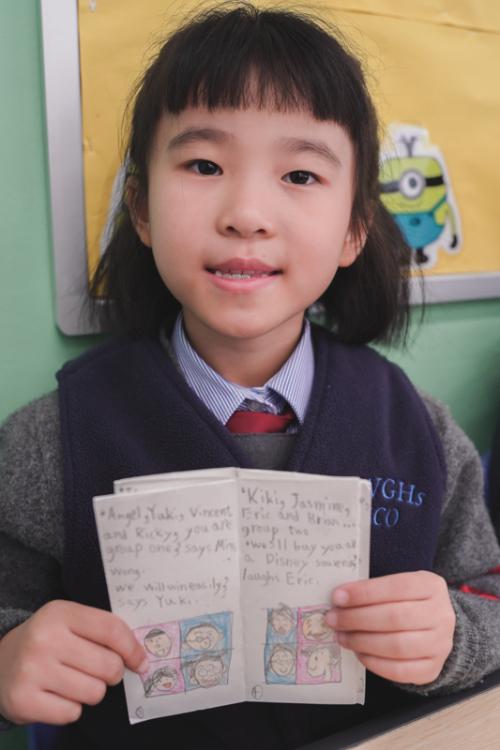 "Angel, Yuki, Vincent
and Ricky, you are
group one," says Miss
Wong.
we will win easily,"
says Yuki.
"Kiki, Jasmine,
Eric and Brian...
group two
"We'll buy you all
a Disney souvenir,"
laughs Eric.
WGHs
CO